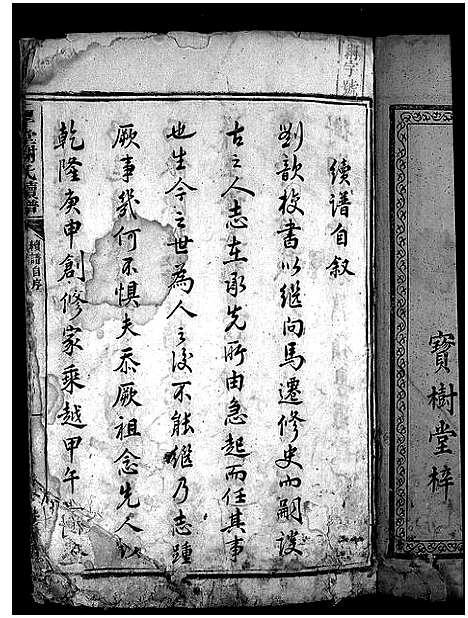 寶樹堂梓
續譜自叙
劉歆校書以繼向馬遷修史而嗣談
古之人志在承先所由急起而任其事
也生今之世為人之後不能繼乃志踵
厥事幾何不惧夫忝厥祖念先人
乾隆庚申創修家乘越甲午
堂謝氏續譜
續譜自序